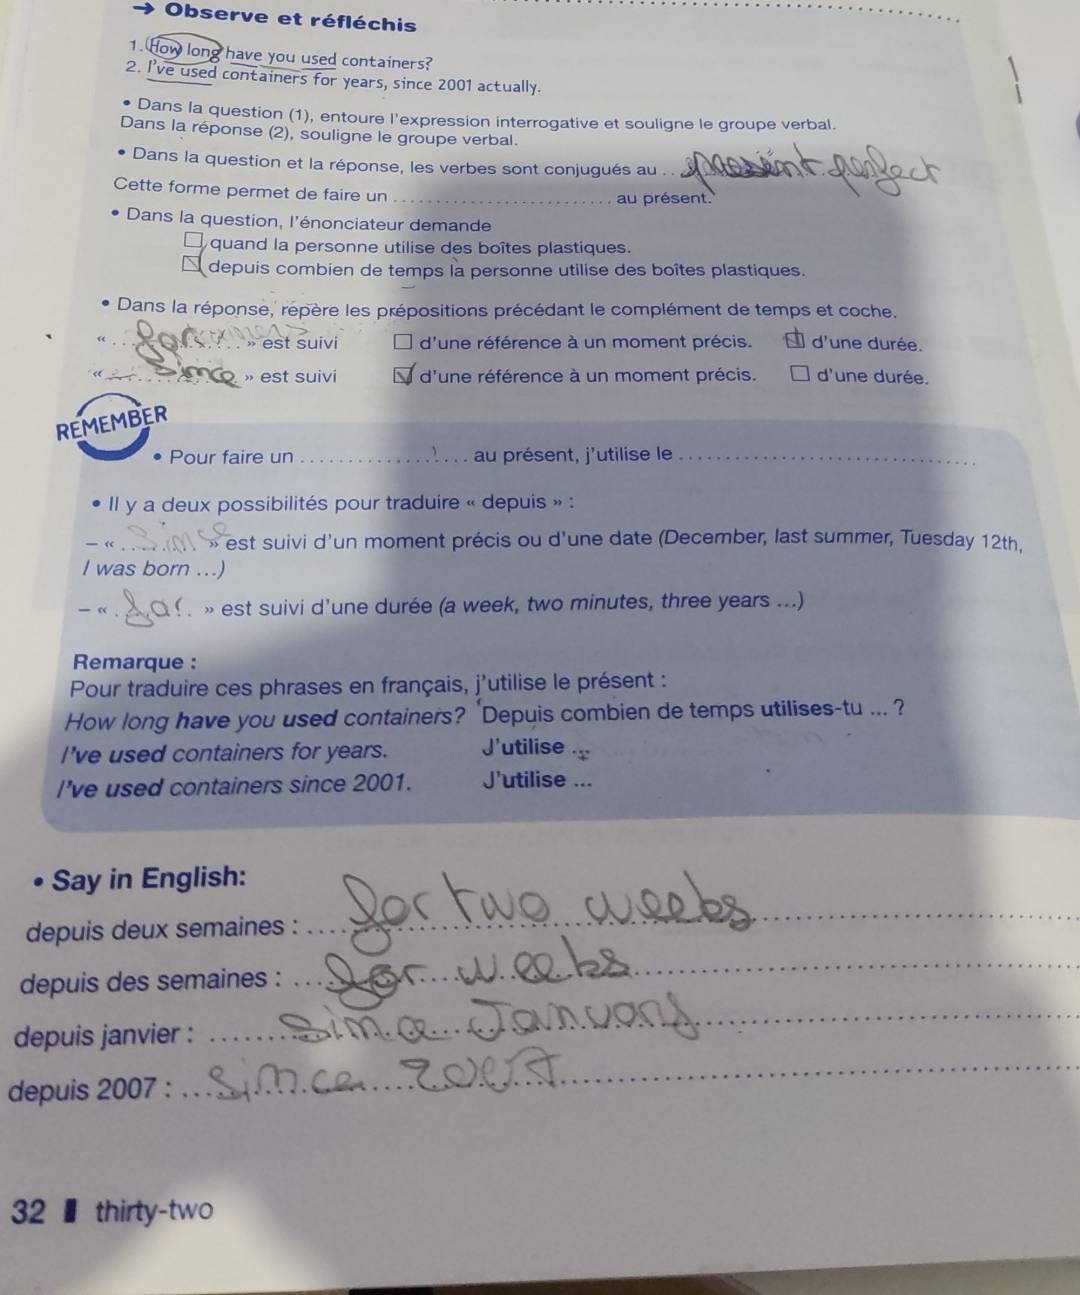 → Observe et réfléchis
1. How long have you used containers?
2. I've used containers for years, since 2001 actually.
• Dans la question (1), entoure l'expression interrogative et souligne le groupe verbal.
Dans la réponse (2), souligne le groupe verbal.
• Dans la question et la réponse, les verbes sont conjugués au present perfect
Cette forme permet de faire un ........ au présent.
• Dans la question, l'énonciateur demande
quand la personne utilise des boîtes plastiques.
depuis combien de temps la personne utilise des boîtes plastiques.
• Dans la réponse, repère les prépositions précédant le complément de temps et coche.
« for » est suivi d'une référence à un moment précis. d'une durée.
« Since » est suivi d'une référence à un moment précis. d'une durée.
REMEMBER
• Pour faire un ........ au présent, j'utilise le ........
• Il y a deux possibilités pour traduire « depuis » :
– « Since » est suivi d'un moment précis ou d'une date (December, last summer, Tuesday 12th,
I was born ...)
– « for » est suivi d'une durée (a week, two minutes, three years ...)
Remarque :
Pour traduire ces phrases en français, j'utilise le présent :
How long have you used containers? Depuis combien de temps utilises-tu ... ?
I've used containers for years. J'utilise ...
I've used containers since 2001. J'utilise ...
• Say in English:
depuis deux semaines : for two weeks
depuis des semaines : for weeks
depuis janvier : Since January
depuis 2007 : Since
32 thirty-two